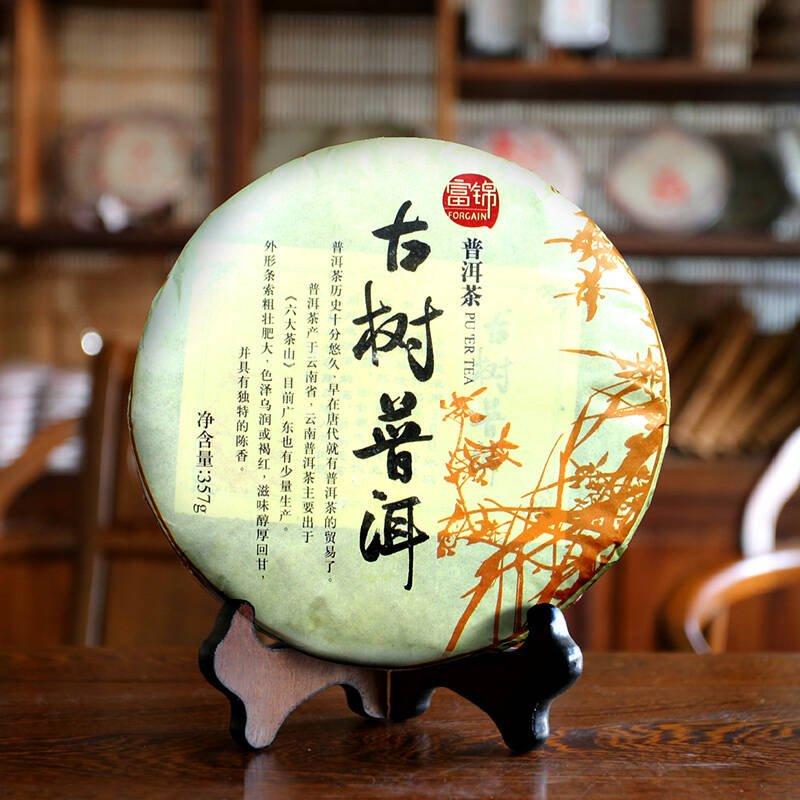 富锦
FORGAIN
普洱茶 PU'ER TEA
古树普洱
普洱茶历史十分悠久,早在唐代就有普洱茶的贸易了。
普洱茶产于云南省,云南普洱茶主要出于
《六大茶山》目前广东也有少量生产。
外形条索粗壮肥大,色泽乌润或褐红,滋味醇厚回甘,
并具有独特的陈香。
净含量:357g